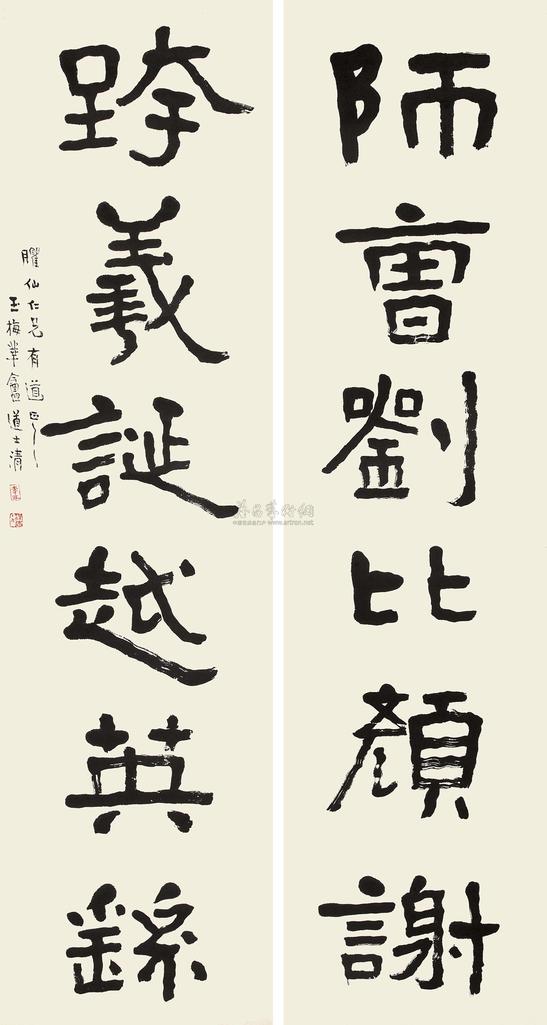 師曹劉比顏謝
跨羲誕越英繇
臞仙仁兄有道正之
玉梅華盦道士清
www.artron.net